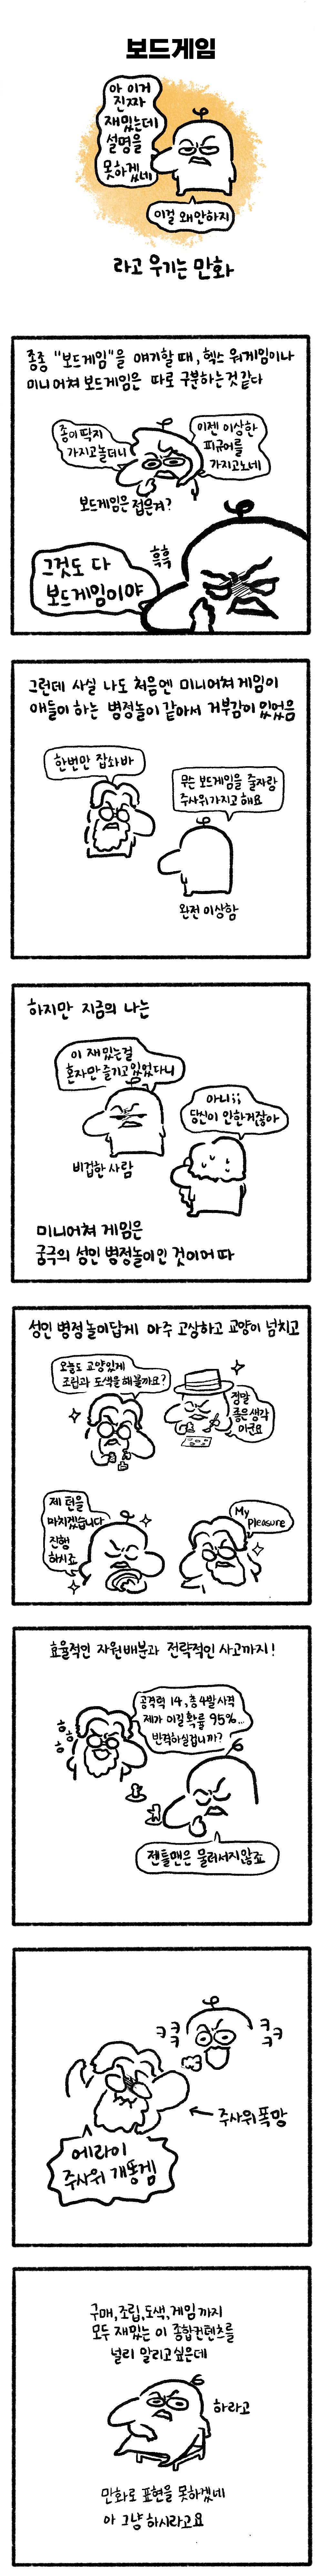 보드게임
아 이거
진짜
재밌는데
설명을
못하겠네
이걸 왜안하지
라고 우기는 만화
종종 "보드게임"을 얘기할 때, 헥스 워게임이나
미니어쳐 보드게임은 따로 구분하는것 같다
종이딱지
가지고놀더니
이젠 이상한
피규어를
가지고노네
보드게임은 접은겨?
흑흑
그것도 다
보드게임이야
그런데 사실 나도 처음엔 미니어쳐 게임이
애들이 하는 병정놀이 같아서 거부감이 있었음
한번만 잡솨바
무슨 보드게임을 줄자랑
주사위가지고 해요
완전 이상함
하지만 지금의 나는
이 재밌는걸
혼자만 즐기고있었다니
아니;;
당신이 안한거잖아
비겁한 사람
미니어쳐 게임은
궁극의 성인 병정놀이인 것이어따
성인 병정놀이답게 아주 고상하고 교양이 넘치고
오늘도 교양있게
조립과 도색을 해볼까요?
정말
좋은생각
이군요
제 턴을
마치겠습니다
진행
하시죠
My
pleasure
효율적인 자원배분과 전략적인 사고까지!
공격력 14, 총 4발사격
제가 이길 확률 95%...
반격하실겁니까?
허허허
젠틀맨은 물러서지않죠
ㅋㅋㅋ
ㅋㅋㅋ
주사위폭망
에라이
주사위 개똥겜
구매,조립,도색,게임까지
모두 재밌는 이 종합컨텐츠를
널리 알리고싶은데
하라고
만화로 표현을 못하겠네
아 그냥 하시라고요